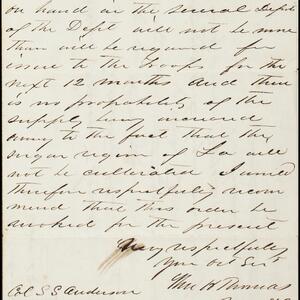 on hand in the several Depots
of the Dept will not be more
than will be required for
issue to the troops for the
next 12 months and there
is no probability of the
supply being increased
owing to the fact that the
sugar region of La will
not be cultivated I would
therefore respectfully recom
mend that this order be
revoked for the present
Very respectfully
Your Obt Sert
Wm H Thomas
Col S. S. Anderson